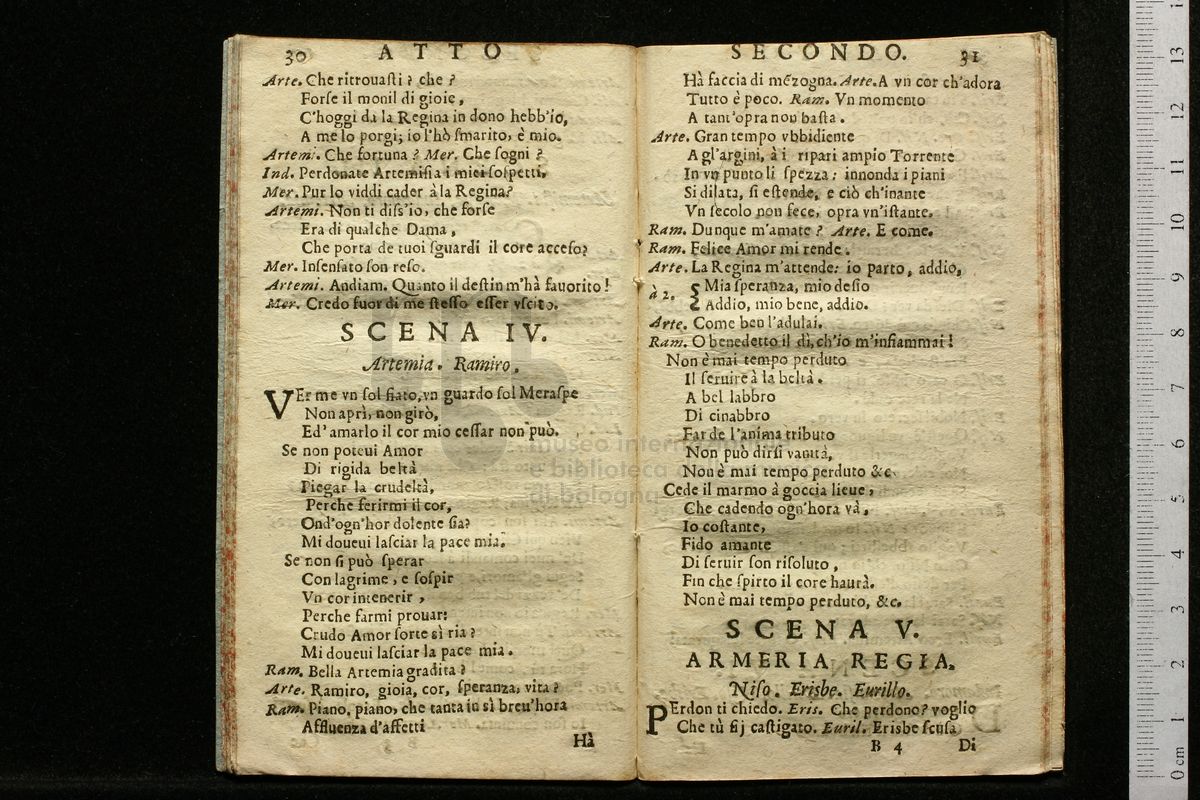 30 ATTO
Arte. Che ritrouaſti? che?
Forſe il monil di gioie,
C'hoggi da la Regina in dono hebb'io,
A me lo porgi; io l'hò ſmarito, è mio.
Artemi. Che fortuna? Mer. Che ſogni?
Ind. Perdonate Artemiſia i miei ſoſpetti.
Mer. Pur lo viddi cader à la Regina?
Artemi. Non ti diſs'io, che forſe
Era di qualche Dama,
Che porta de tuoi ſguardi il core acceſo?
Mer. Inſenſato ſon reſo.
Artemi. Andiam. Quanto il deſtin m'hà fauorito!
Mer. Credo fuor di me ſteſſo eſſer vſcito.
SCENA IV.
Artemia. Ramiro.
VEr me vn ſol fiato, vn guardo ſol Meraſpe
Non aprì, non girò,
Ed' amarlo il cor mio ceſſar non può.
Se non poteui Amor
Di rigida beltà
Piegar la crudeltà,
Perche ferirmi il cor,
Ond'ogn'hor dolente ſia?
Mi doueui laſciar la pace mia.
Se non ſi può ſperar
Con lagrime, e ſoſpir
Vn cor intenerir,
Perche farmi prouar:
Crudo Amor ſorte sì ria?
Mi doueui laſciar la pace mia.
Ram. Bella Artemia gradita?
Arte. Ramiro, gioia, cor, ſperanza, vita?
Ram. Piano, piano, che tanta in sì breu'hora
Affluenza d'affetti
Hà
SECONDO. 31
Hà faccia di mézogna. Arte. A vn cor ch'adora
Tutto è poco. Ram. Vn momento
A tant'opra non baſta.
Arte. Gran tempo vbbidiente
A gl'argini, à i ripari ampio Torrente
In vn punto li ſpezza: innonda i piani
Si dilata, ſi eſtende, e ciò ch'inante
Vn ſecolo non fece, opra vn'iſtante.
Ram. Dunque m'amate? Arte. E come.
Ram. Felice Amor mi rende.
Arte. La Regina m'attende: io parto, addio,
à 2. Mia ſperanza, mio deſio
Addio, mio bene, addio.
Arte. Come ben l'adulai.
Ram. O benedetto il dì, ch'io m'infiammai!
Non è mai tempo perduto
Il ſeruire à la beltà.
A bel labbro
Di cinabbro
Far de l'anima tributo
Non può dirſi vanità,
Non è mai tempo perduto &c.
Cede il marmo à goccia lieue,
Che cadendo ogn'hora và,
Io coſtante,
Fido amante
Di ſeruir ſon riſoluto,
Fin che ſpirto il core haurà.
Non è mai tempo perduto, &c.
SCENA V.
ARMERIA REGIA.
Niſo. Erisbe. Eurillo.
PErdon ti chiedo. Eris. Che perdono? voglio
Che tù ſij caſtigato. Euril. Erisbe ſcuſa
B 4 Di
museo internazionale
e biblioteca
di bologna
0 cm 1 2 3 4 5 6 7 8 9 10 11 12 13